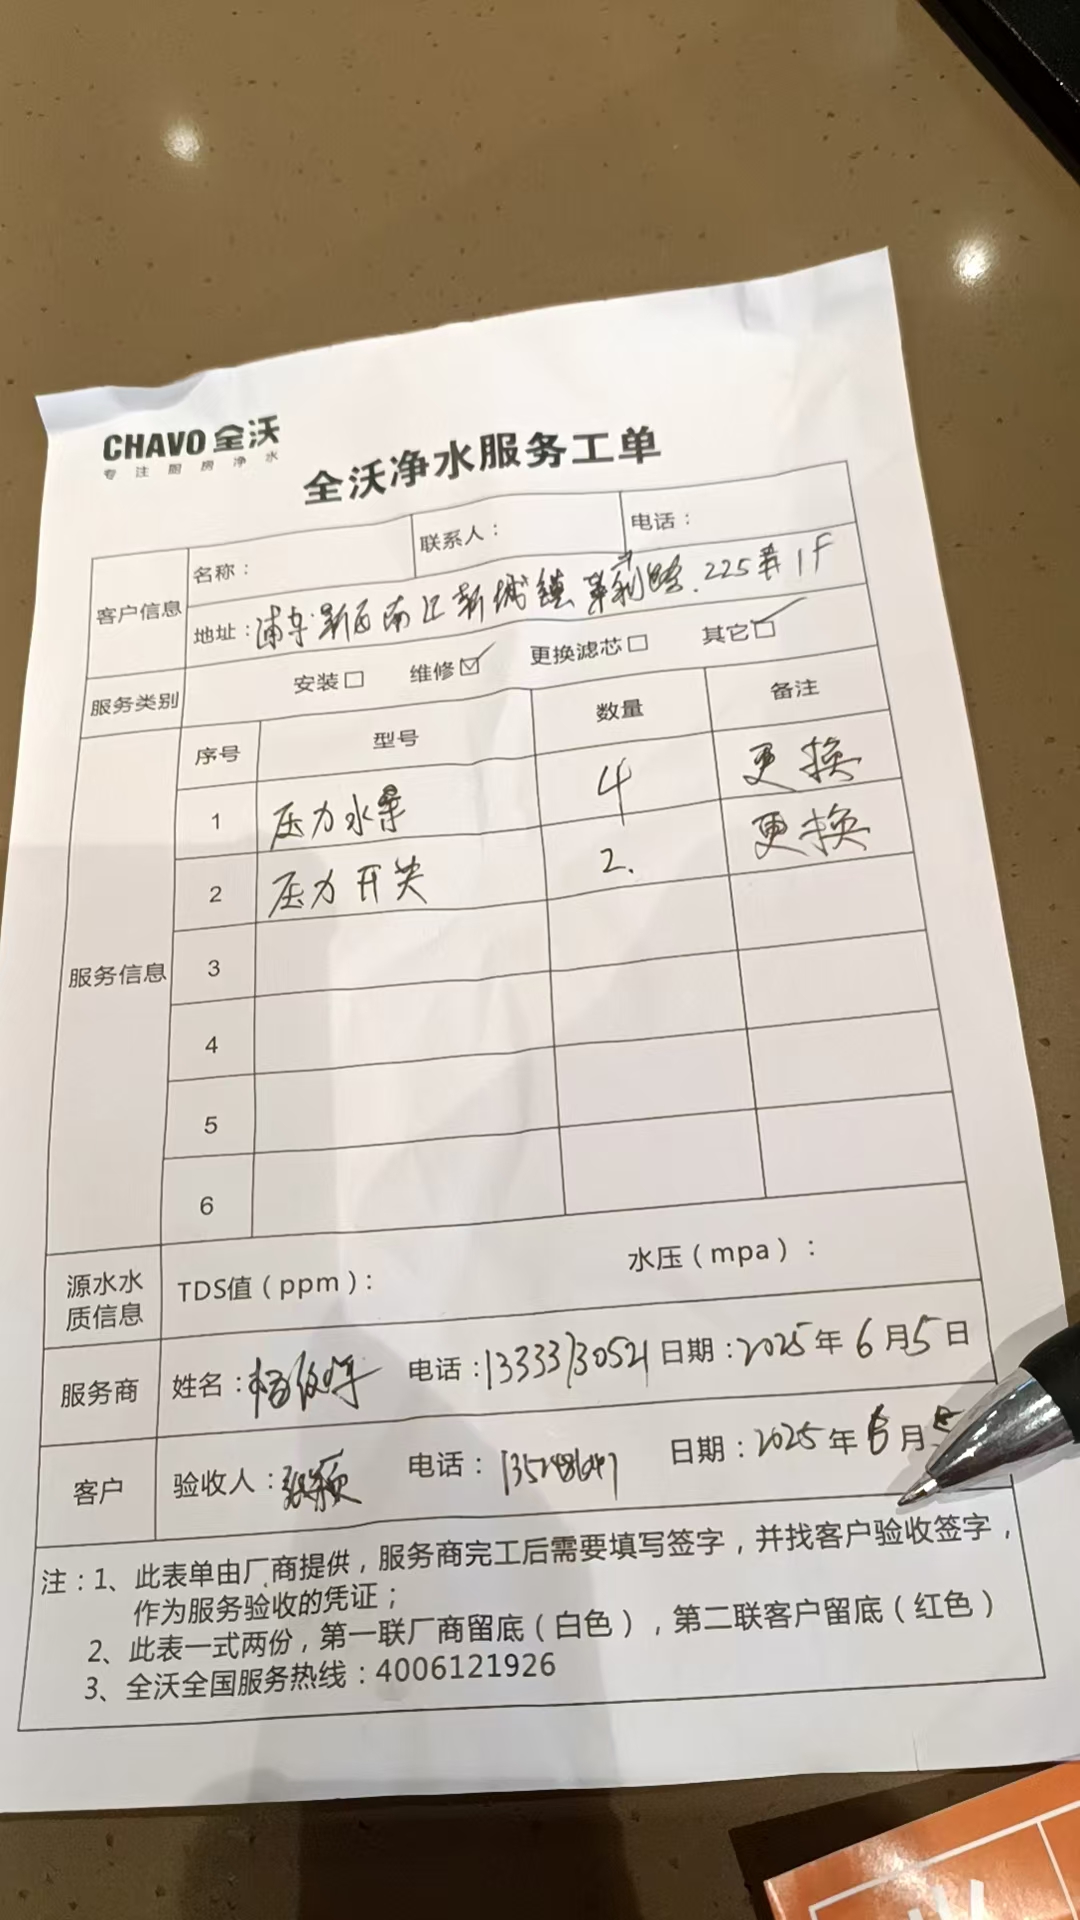 CHAVO 全沃
专注厨房净水
全沃净水服务工单
客户信息
名称： 联系人： 电话：
地址：浦东新区南汇新城镇 225弄1F
服务类别 安装□ 维修☑ 更换滤芯□ 其它☑
服务信息
序号 型号 数量 备注
1 压力水桶 4 更换
2 压力开关 2. 更换
3
4
5
6
源水水质信息 TDS值（ppm）： 水压（mpa）：
服务商 姓名：杨 电话：13333730521 日期：2025年6月5日
客户 验收人：张颖 电话： 日期：2025年6月
注：1、此表单由厂商提供，服务商完工后需要填写签字，并找客户验收签字，
作为服务验收的凭证；
2、此表一式两份，第一联厂商留底（白色），第二联客户留底（红色）
3、全沃全国服务热线：4006121926